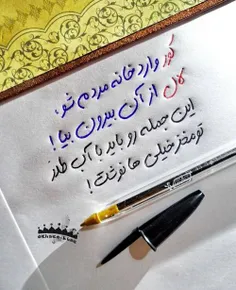 کور وارد خانه مردم شو،
لال از آن بیرون بیا!
این جمله رو باید با آب طلا
تو مغز خیلی ها نوشت!